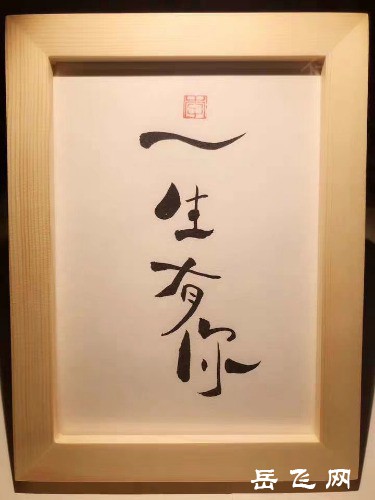 一生有你
岳飞网